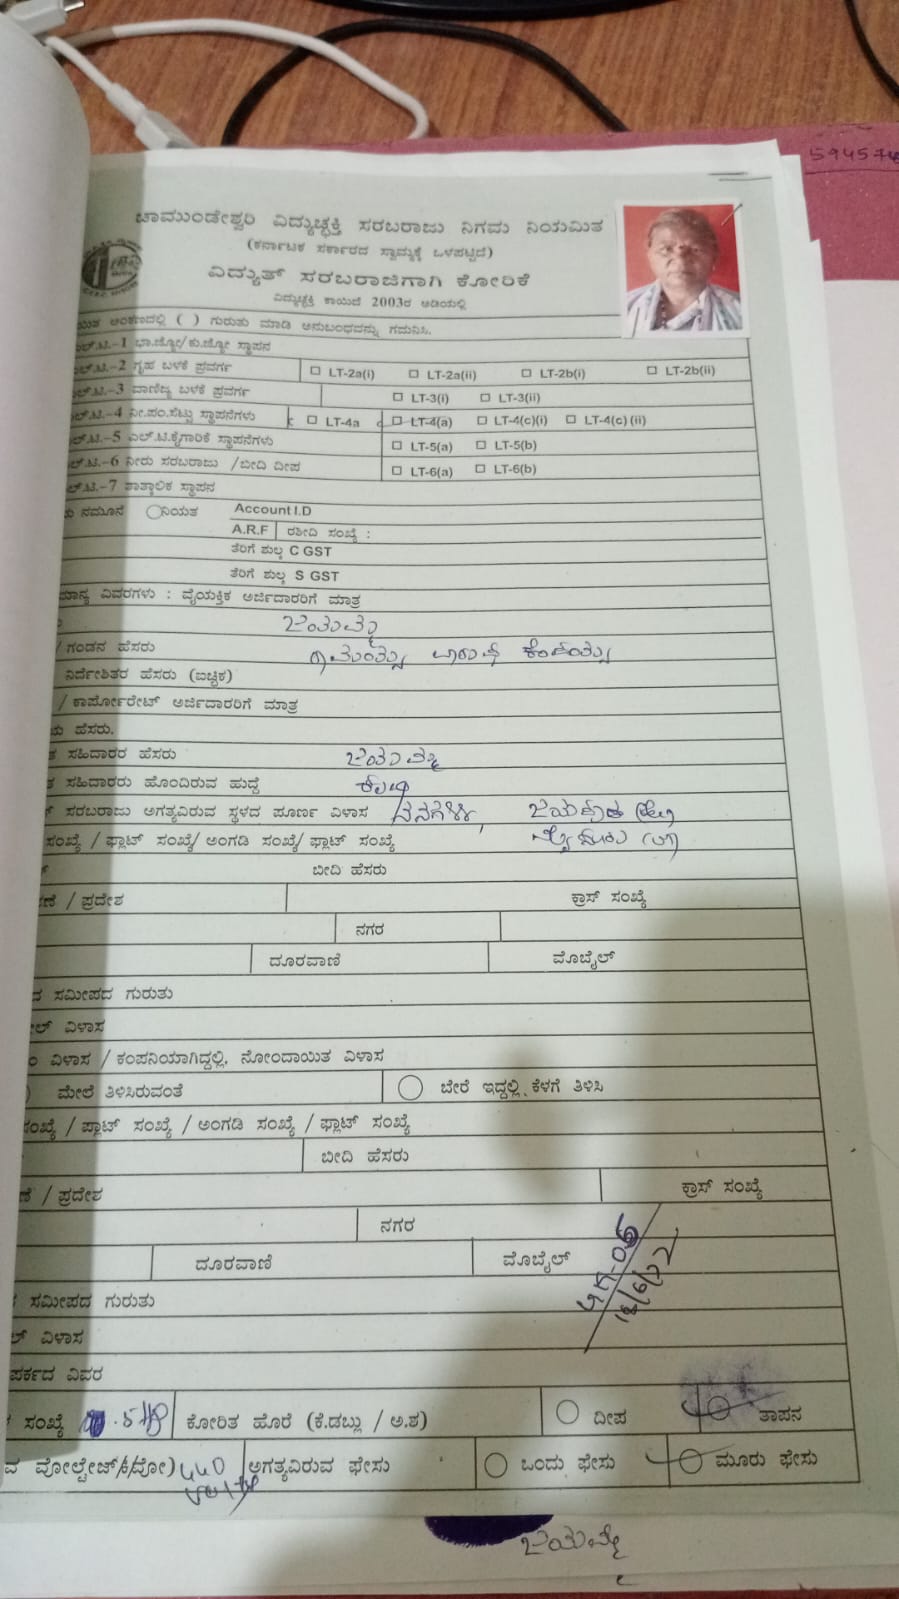 594574
ಚಾಮುಂಡೇಶ್ವರಿ ವಿದ್ಯುಚ್ಛಕ್ತಿ ಸರಬರಾಜು ನಿಗಮ ನಿಯಮಿತ
(ಕರ್ನಾಟಕ ಸರ್ಕಾರದ ಸ್ವಾಮ್ಯಕ್ಕೆ ಒಳಪಟ್ಟಿದೆ)
ವಿದ್ಯುತ್ ಸರಬರಾಜಿಗಾಗಿ ಕೋರಿಕೆ
ವಿದ್ಯುಚ್ಛಕ್ತಿ ಕಾಯಿದೆ 2003ರ ಅಡಿಯಲ್ಲಿ
ಅಂಕಣದಲ್ಲಿ ( ) ಗುರುತು ಮಾಡಿ ಅನುಬಂಧವನ್ನು ಗಮನಿಸಿ.
ಎಲ್.ಟಿ.-1 ಭಾ.ಜ್ಯೋ/ಕು.ಜ್ಯೋ ಸ್ಥಾಪನ
ಎಲ್.ಟಿ.-2 ಗೃಹ ಬಳಕೆ ಪ್ರವರ್ಗ LT-2a(i) LT-2a(ii) LT-2b(i) LT-2b(ii)
ಎಲ್.ಟಿ.-3 ವಾಣಿಜ್ಯ ಬಳಕೆ ಪ್ರವರ್ಗ LT-3(i) LT-3(ii)
ಎಲ್.ಟಿ.-4 ನೀ.ಪಂ.ಸೆಟ್ಟು ಸ್ಥಾಪನೆಗಳು LT-4a LT-4(a) LT-4(c)(i) LT-4(c)(ii)
ಎಲ್.ಟಿ.-5 ಎಲ್.ಟಿ.ಕೈಗಾರಿಕೆ ಸ್ಥಾಪನೆಗಳು LT-5(a) LT-5(b)
ಎಲ್.ಟಿ.-6 ನೀರು ಸರಬರಾಜು /ಬೀದಿ ದೀಪ LT-6(a) LT-6(b)
ಎಲ್.ಟಿ.-7 ತಾತ್ಕಾಲಿಕ ಸ್ಥಾಪನ
ನಮೂನೆ ನಿಯತ Account I.D
A.R.F ರಶೀದಿ ಸಂಖ್ಯೆ :
ತೆರಿಗೆ ಶುಲ್ಕ C GST
ತೆರಿಗೆ ಶುಲ್ಕ S GST
ವಿವರಗಳು : ವೈಯಕ್ತಿಕ ಅರ್ಜಿದಾರರಿಗೆ ಮಾತ್ರ
ಜಯಮ್ಮ
/ ಗಂಡನ ಹೆಸರು
ನಿರ್ದೇಶಿತರ ಹೆಸರು (ಐಚ್ಛಿಕ)
/ ಕಾರ್ಪೋರೇಟ್ ಅರ್ಜಿದಾರರಿಗೆ ಮಾತ್ರ
ಹೆಸರು.
ಸಹಿದಾರರ ಹೆಸರು ಜಯಮ್ಮ
ಸಹಿದಾರರು ಹೊಂದಿರುವ ಹುದ್ದೆ
ಸರಬರಾಜು ಅಗತ್ಯವಿರುವ ಸ್ಥಳದ ಪೂರ್ಣ ವಿಳಾಸ
ಸಂಖ್ಯೆ / ಫ್ಲಾಟ್ ಸಂಖ್ಯೆ/ ಅಂಗಡಿ ಸಂಖ್ಯೆ/ ಫ್ಲಾಟ್ ಸಂಖ್ಯೆ ಮೈಸೂರು (ತಾ)
ಬೀದಿ ಹೆಸರು
/ ಪ್ರದೇಶ ಕ್ರಾಸ್ ಸಂಖ್ಯೆ
ನಗರ
ದೂರವಾಣಿ ಮೊಬೈಲ್
ಸಮೀಪದ ಗುರುತು
ವಿಳಾಸ
ವಿಳಾಸ / ಕಂಪನಿಯಾಗಿದ್ದಲ್ಲಿ, ನೋಂದಾಯಿತ ವಿಳಾಸ
ಮೇಲೆ ತಿಳಿಸಿರುವಂತೆ ಬೇರೆ ಇದ್ದಲ್ಲಿ ಕೆಳಗೆ ತಿಳಿಸಿ
ಸಂಖ್ಯೆ / ಪ್ಲಾಟ್ ಸಂಖ್ಯೆ / ಅಂಗಡಿ ಸಂಖ್ಯೆ / ಫ್ಲಾಟ್ ಸಂಖ್ಯೆ
ಬೀದಿ ಹೆಸರು
/ ಪ್ರದೇಶ ಕ್ರಾಸ್ ಸಂಖ್ಯೆ
ನಗರ
ದೂರವಾಣಿ ಮೊಬೈಲ್
18/6/22
ಸಮೀಪದ ಗುರುತು
ವಿಳಾಸ
ವಿವರ
ಸಂಖ್ಯೆ ಕೋರಿತ ಹೊರೆ (ಕೆ.ಡಬ್ಲು / ಅ.ಶ) ದೀಪ ತಾಪನ
ವೋಲ್ಟೇಜ್ 440 ಅಗತ್ಯವಿರುವ ಫೇಸು ಒಂದು ಫೇಸು ಮೂರು ಫೇಸು
ಜಯಮ್ಮ